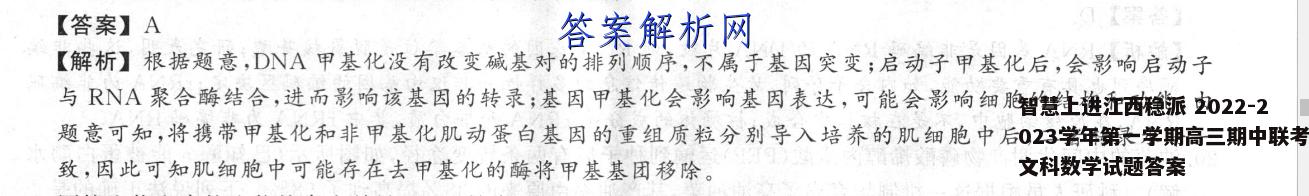 【答案】A
答案解析网
【解析】根据题意,DNA 甲基化没有改变碱基对的排列顺序,不属于基因突变;启动子甲基化后,会影响启动子
与 RNA 聚合酶结合,进而影响该基因的转录;基因甲基化会影响基因表达,可能会影响细胞的
题意可知,将携带甲基化和非甲基化肌动蛋白基因的重组质粒分别导入培养的肌细胞中后
致,因此可知肌细胞中可能存在去甲基化的酶将甲基基团移除。
智慧上进江西稳派 2022-2
023学年第一学期高三期中联考
文科数学试题答案